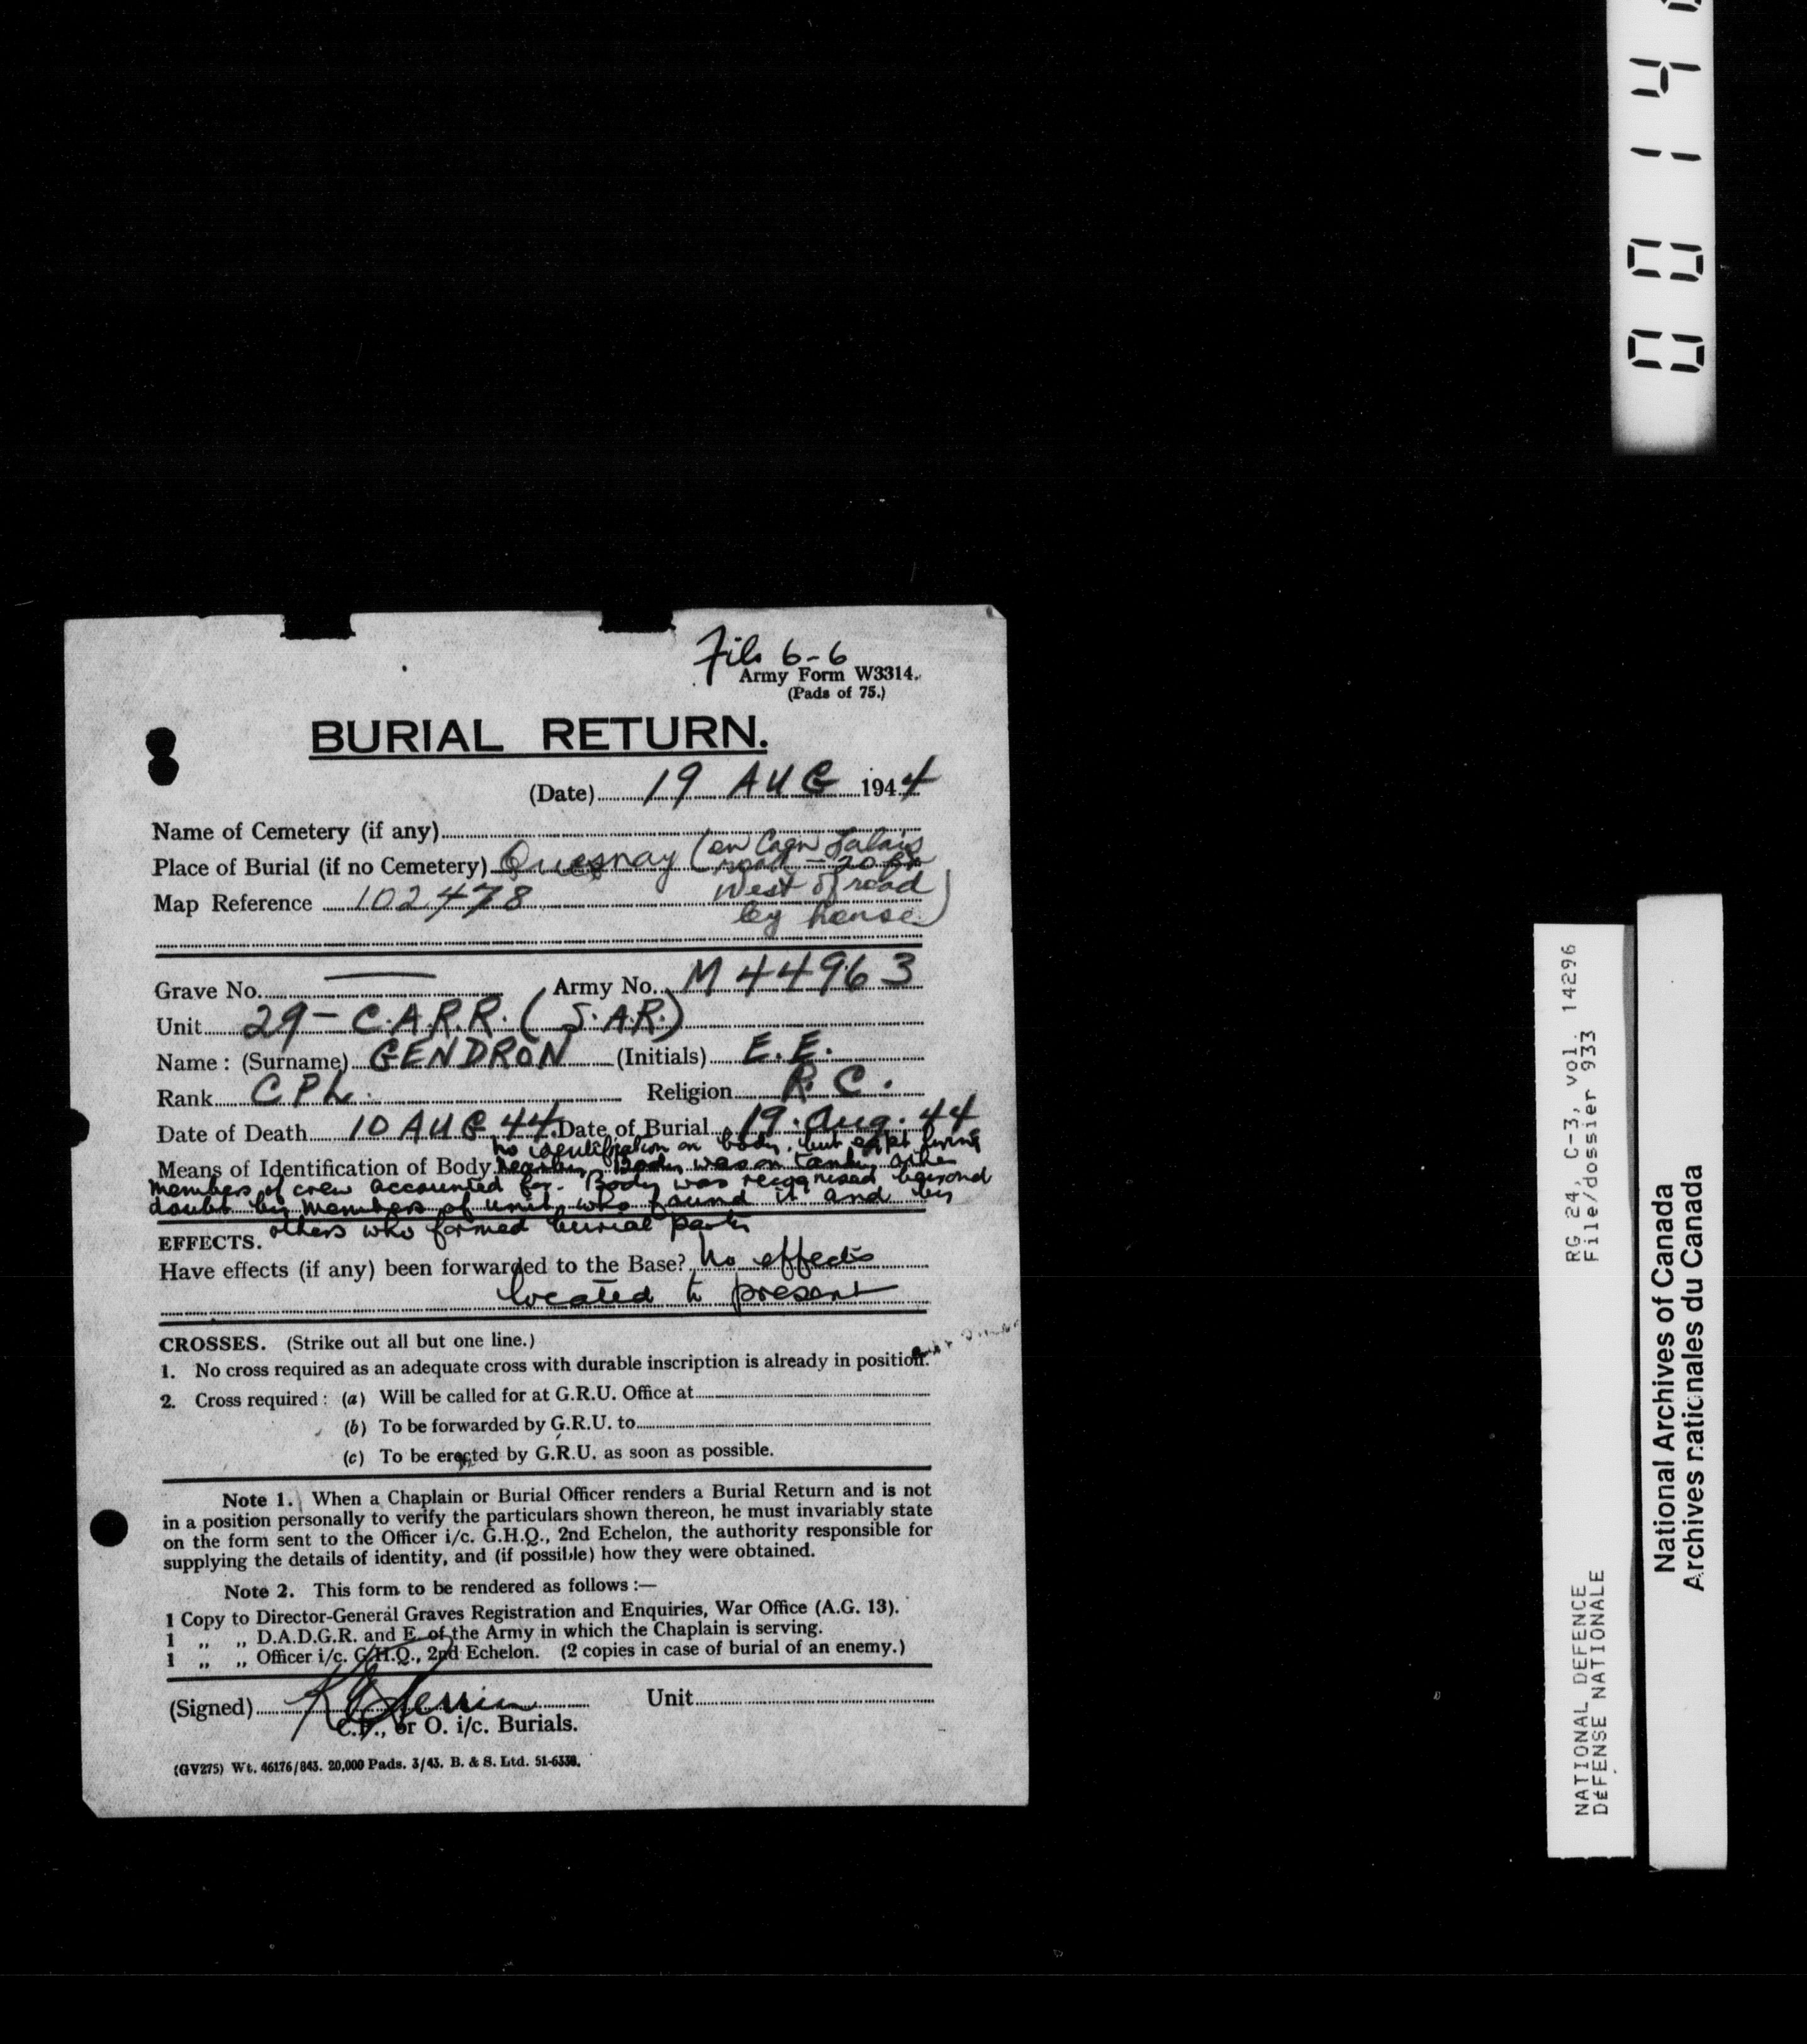 File 6-6
Army Form W3314.
(Pads of 75.)
BURIAL RETURN.
(Date) 19 AUG 1944
Name of Cemetery (if any)
Place of Burial (if no Cemetery) Quesnay (on Caen Falais
road - 20
Map Reference 102478 West of road
by house)
Grave No. — Army No. M 44963
Unit 29 - C.A.R.R. (S.A.R.)
Name: (Surname) GENDRON (Initials) E.E.
Rank CPL. Religion R.C.
Date of Death 10 AUG 44. Date of Burial 19. Aug. 44
No identification on body, but
Means of Identification of Body nearby. Body was on tank, other
members of crew accounted for. Body was recognised beyond
doubt by members of unit who found it and by
others who formed burial party
EFFECTS.
Have effects (if any) been forwarded to the Base? No effects
located to present
CROSSES. (Strike out all but one line.)
1. No cross required as an adequate cross with durable inscription is already in position.
2. Cross required: (a) Will be called for at G.R.U. Office at
(b) To be forwarded by G.R.U. to
(c) To be erected by G.R.U. as soon as possible.
Note 1. When a Chaplain or Burial Officer renders a Burial Return and is not
in a position personally to verify the particulars shown thereon, he must invariably state
on the form sent to the Officer i/c. G.H.Q., 2nd Echelon, the authority responsible for
supplying the details of identity, and (if possible) how they were obtained.
Note 2. This form to be rendered as follows:—
1 Copy to Director-General Graves Registration and Enquiries, War Office (A.G. 13).
1 „ „ D.A.D.G.R. and E. of the Army in which the Chaplain is serving.
1 „ „ Officer i/c. G.H.Q., 2nd Echelon. (2 copies in case of burial of an enemy.)
(Signed) Unit
C.F., or O. i/c. Burials.
(GV275) Wt. 46176/843. 20,000 Pads. 3/43. B. & S. Ltd. 51-6338.
0014
NATIONAL DEFENCE RG 24, C-3, vol. 14296
DÉFENSE NATIONALE File/dossier 933
National Archives of Canada
Archives nationales du Canada